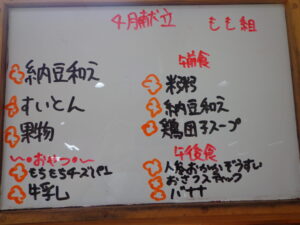 4月献立 もも組
納豆和え
すいとん
果物
〜•おやつ•〜
もちもちチーズパン
牛乳
午前食
粉粥
納豆和え
鶏団子スープ
午後食
おかかぞうすい
おさつスティック
バナナ